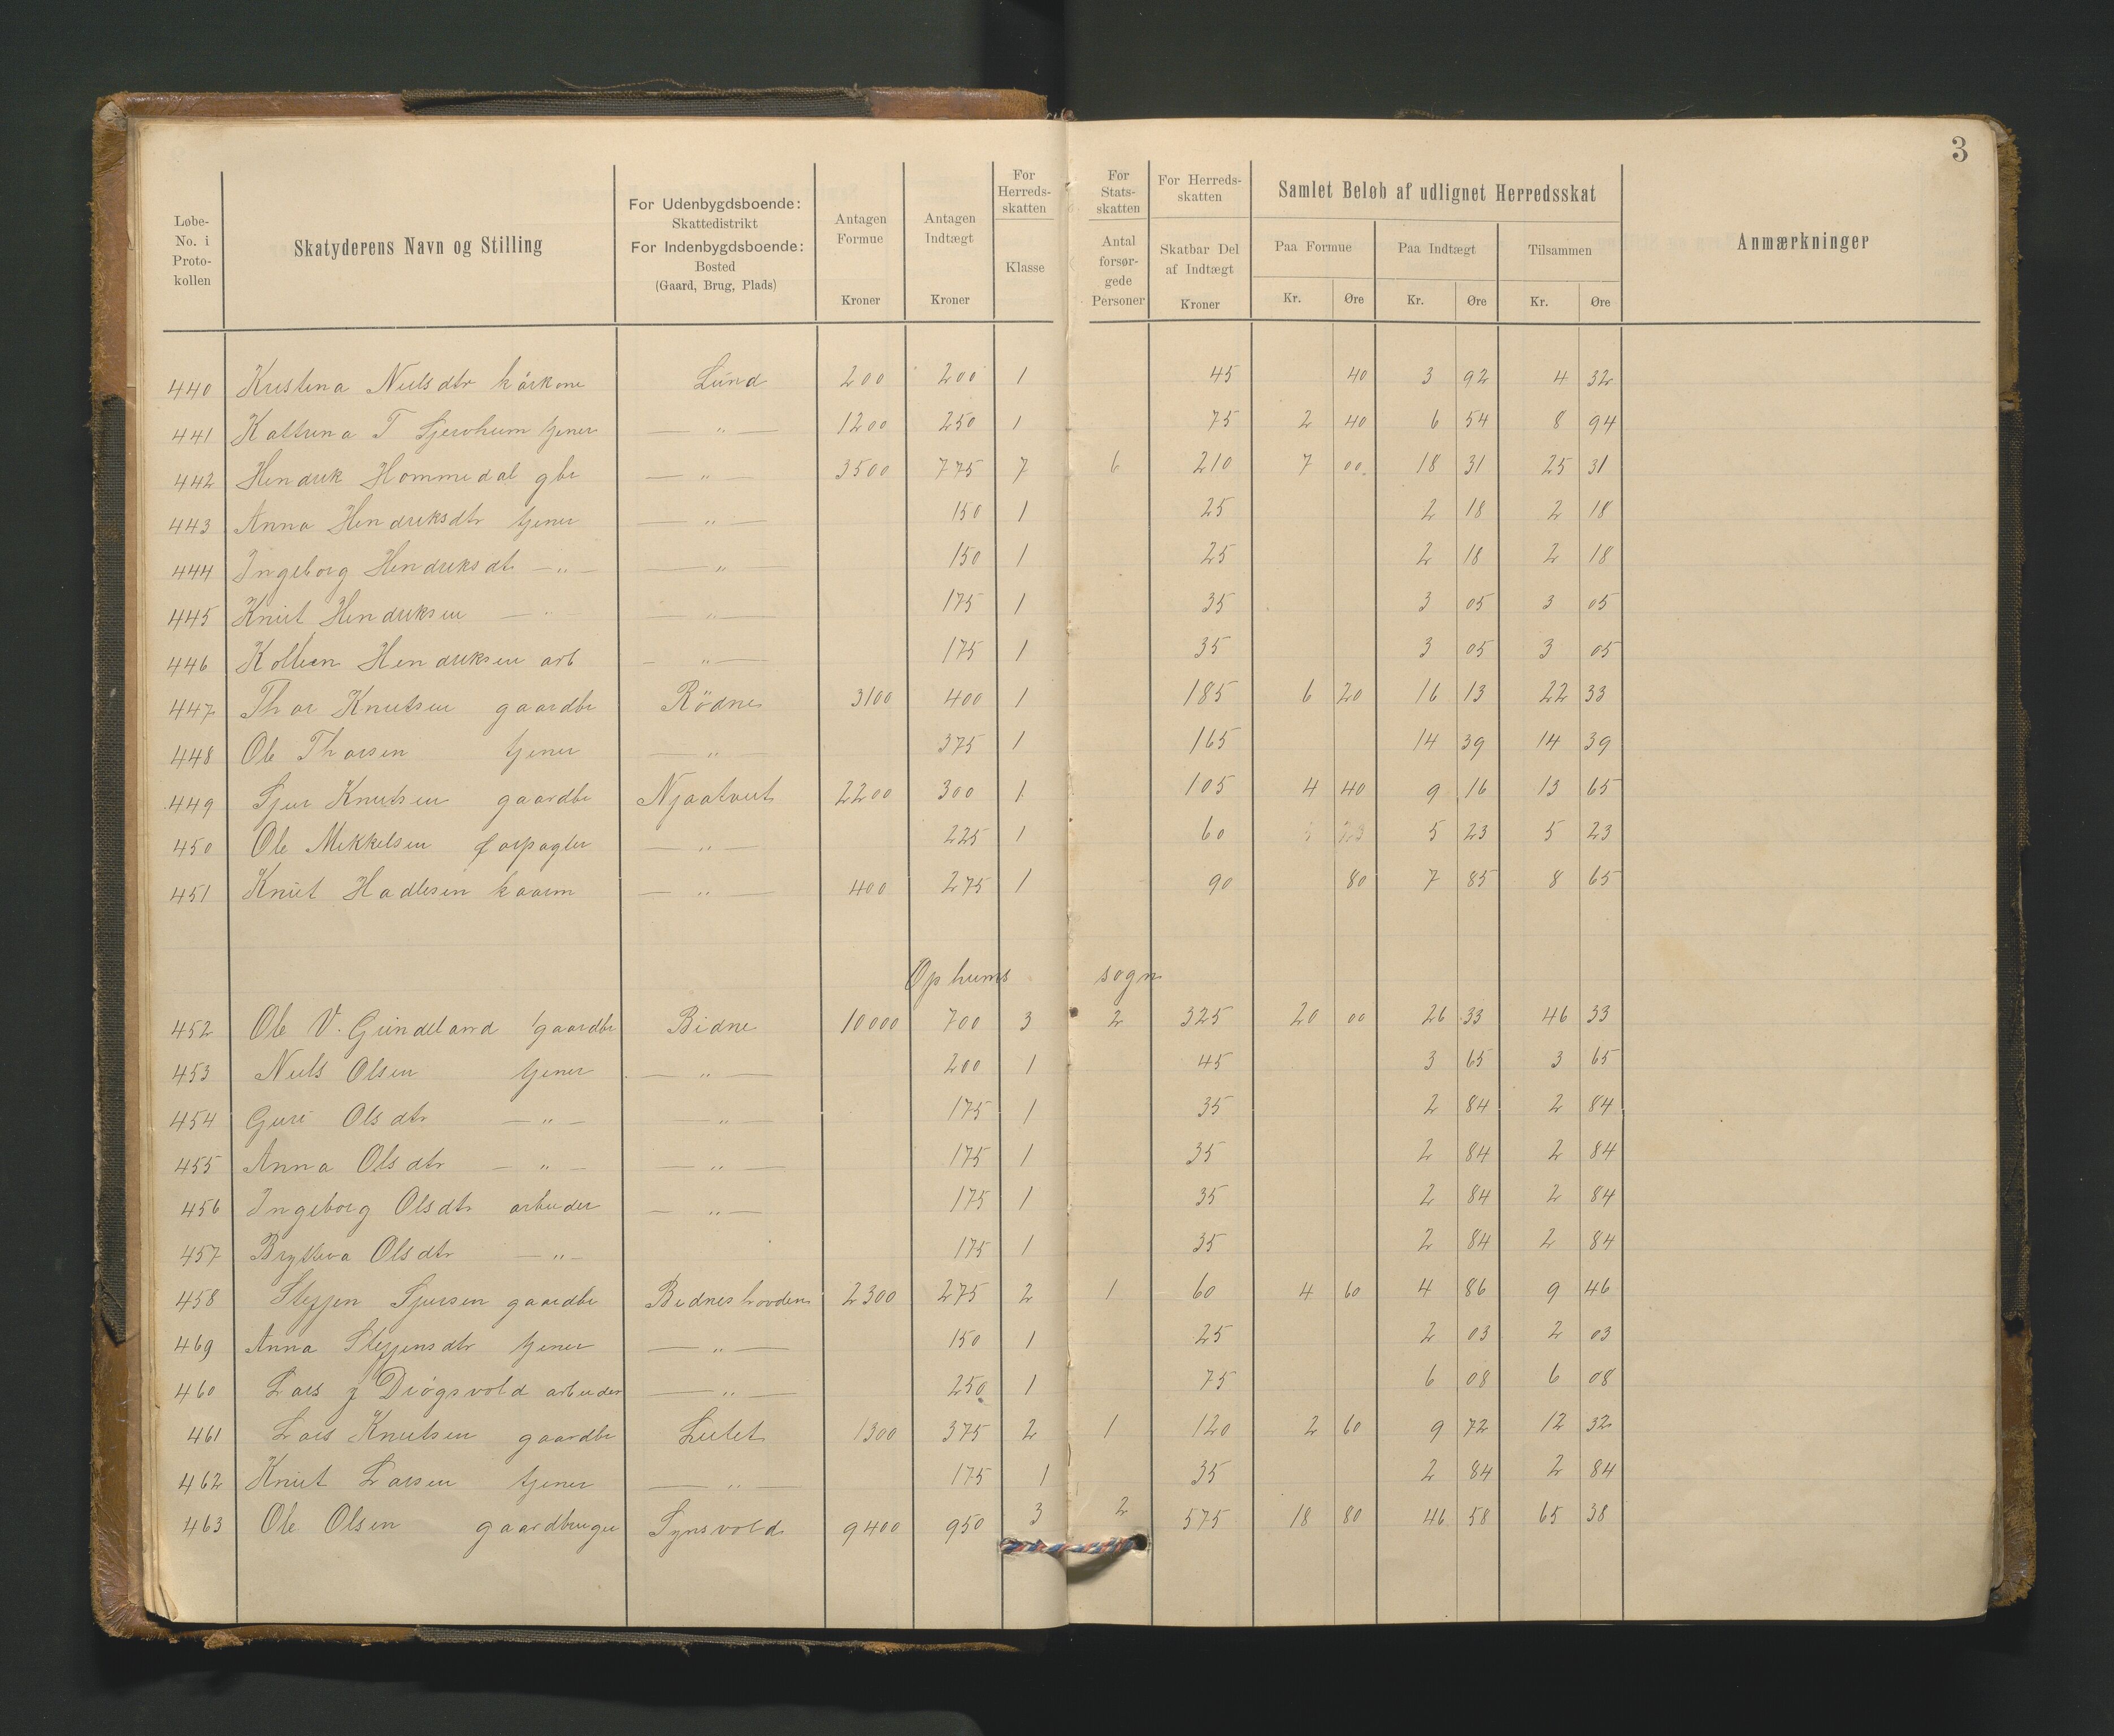 3
Løbe-No. i Proto-kollen | Skatyderens Navn og Stilling | For Udenbygdsboende: Skattedistrikt For Indenbygdsboende: Bosted (Gaard, Brug, Plads) | Antagen Formue Kroner | Antagen Indtægt Kroner | For Herreds-skatten Klasse | For Stats-skatten Antal forsør-gede Personer | For Herreds-skatten Skatbar Del af Indtægt Kroner | Samlet Beløb af udlignet Herredsskat | Anmærkninger
Paa Formue Kr. Øre | Paa Indtægt Kr. Øre | Tilsammen Kr. Øre
440 Kristina Nielsdtr kårkone Lund 200 200 1 45 40 3 92 4 32
441 Kattrina T tjener — „ — 1200 250 1 75 2 40 6 54 8 94
442 Hendrik Hommedal gbr — „ — 3500 775 7 6 210 7 00 18 31 25 31
443 Anna Hendriksdtr tjener — „ — 150 1 25 2 18 2 18
444 Ingeborg Hendriksdt — „ — — „ — 150 1 25 2 18 2 18
445 Knut Hendriksen — „ — — „ — 175 1 35 3 05 3 05
446 Hendriksen arb — „ — 175 1 35 3 05 3 05
447 Thor Knutsen gaardbr Rödne 3100 400 1 185 6 20 16 13 22 33
448 Ole Thorsen tjener — „ — 375 1 165 14 39 14 39
449 Sjur Knutsen gaardbr 2200 300 1 105 4 40 9 16 13 65
450 Ole Mikkelsen forpagter — „ — 225 1 60 5 23 5 23
451 Knut Hadlesen kaarm — „ — 400 275 1 90 80 7 85 8 65
Opheims sogn
452 Ole V. Grindeland gaardbr Bidne 10000 700 3 2 325 20 00 26 33 46 33
453 Niels Olsen tjener — „ — 200 1 45 3 65 3 65
454 Guri Olsdtr — „ — — „ — 175 1 35 2 84 2 84
455 Anna Olsdtr — „ — — „ — 175 1 35 2 84 2 84
456 Ingeborg Olsdtr arbeider — „ — 175 1 35 2 84 2 84
457 Brytteva Olsdtr — „ — 175 1 35 2 84 2 84
458 Steffen Sjursen gaardbr Bidneshovden 2300 275 2 1 60 4 60 4 86 9 46
469 Anna Steffensdtr tjener — „ — 150 1 25 2 03 2 03
460 Lars arbeider — „ — 250 1 75 6 08 6 08
461 Lars Knutsen gaardbr 1300 375 2 1 120 2 60 9 72 12 32
462 Knut Larsen tjener — „ — 175 1 35 2 84 2 84
463 Ole Olsen gaardbruger 9400 950 3 2 575 18 80 46 58 65 38